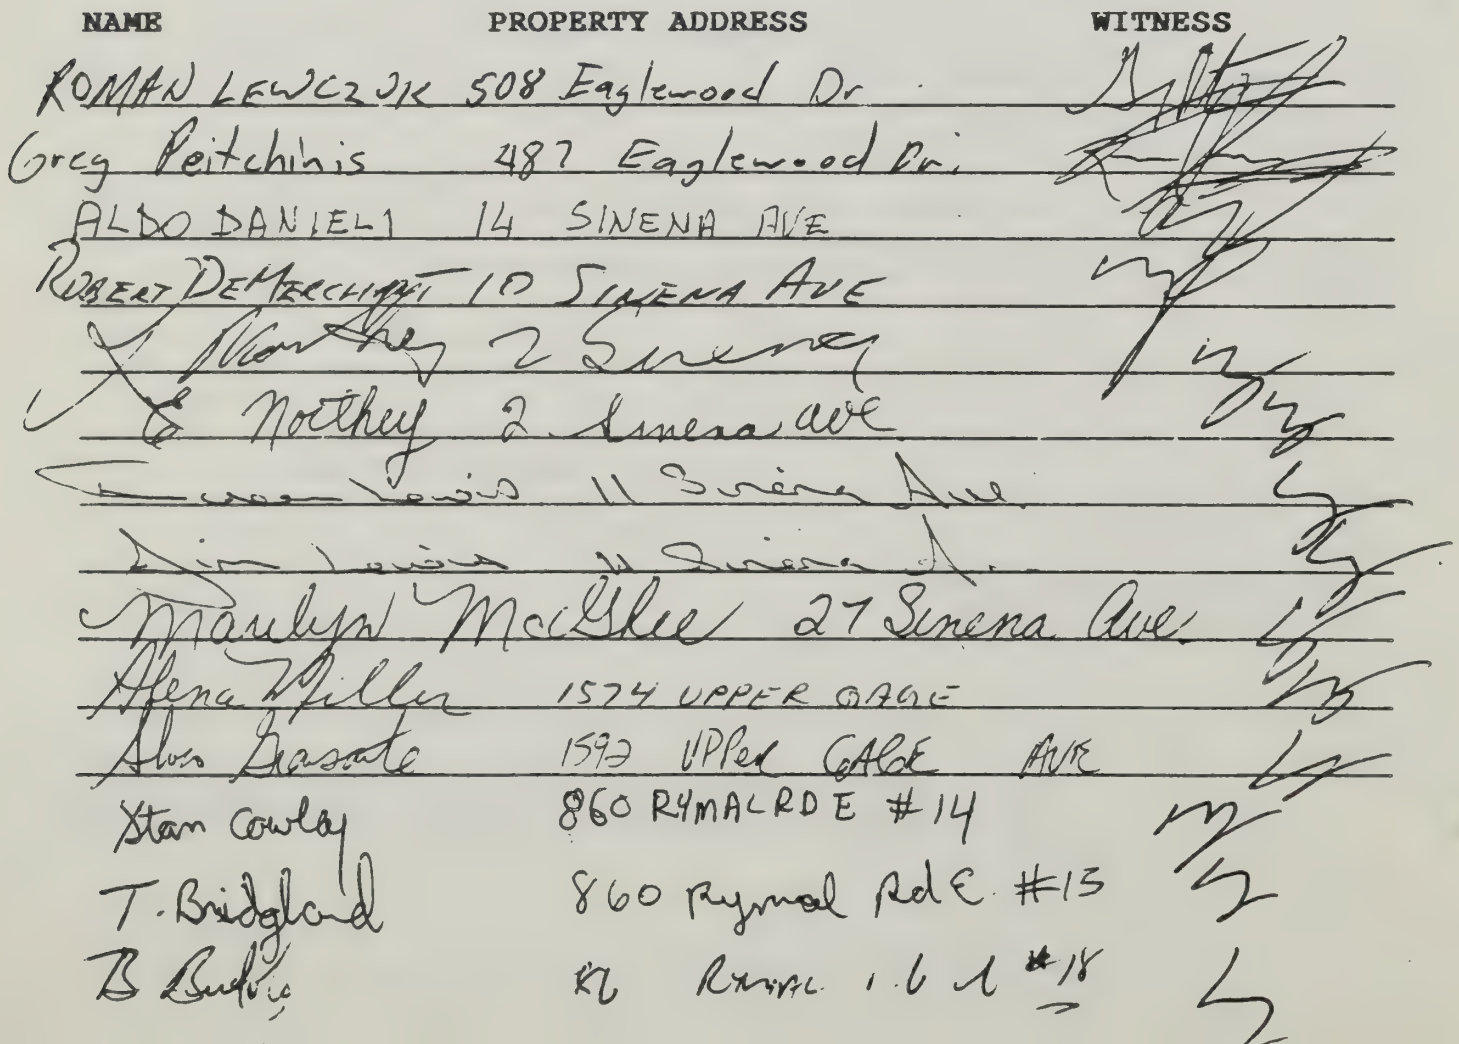 NAME PROPERTY ADDRESS WITNESS
ROMAN LEWCZUK 508 Eaglewood Dr
Greg Peitchinis 487 Eaglewood Dr.
ALDO DANIELI 14 SINENA AVE
ROBERT DEMERCHANT 10 SINENA AVE
Northey 2 Sinena
E Northey 2 Sinena ave
Lewis 11 Sinena Ave.
Jim Lewis 11 Sinena A.
Marilyn MacGhee 27 Sinena Ave.
Miller 1574 UPPER GAGE
1592 UPPer GAGE AVE
Stan Cowley 860 RYMAL RD E #14
T. Bridgland 860 Rymal Rd E. #15
B RYMAL #18